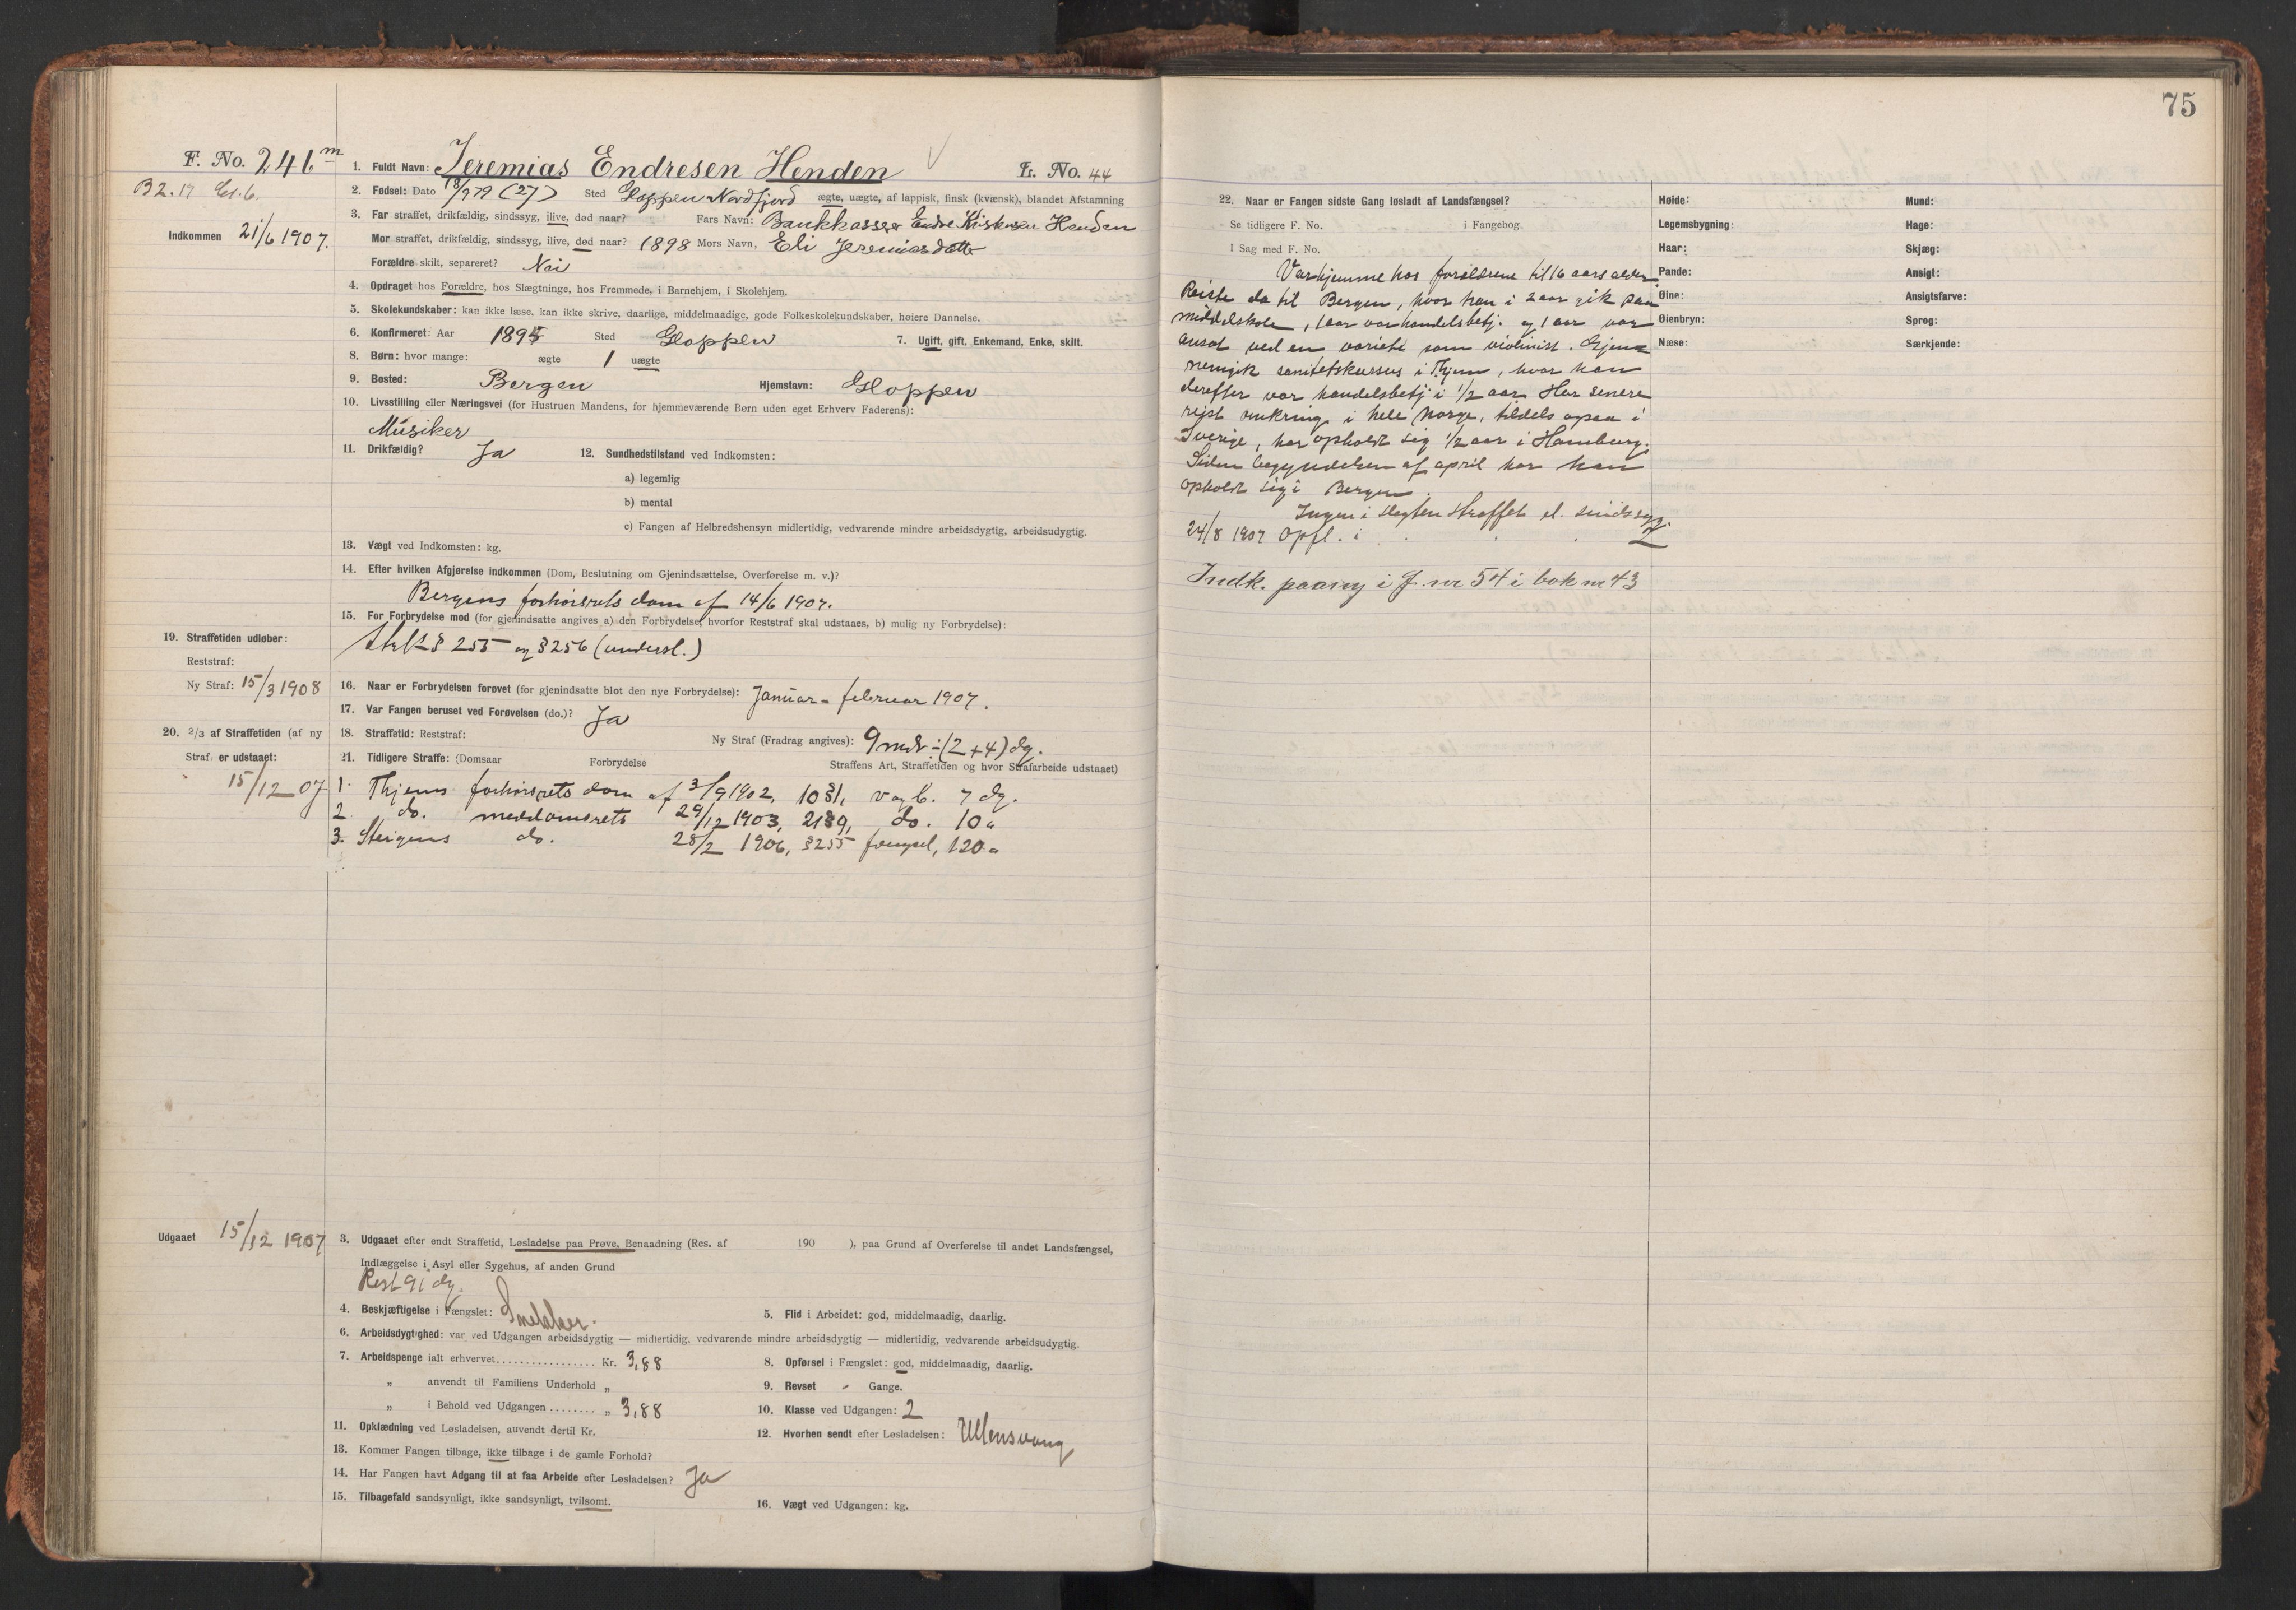 75
F. No. 246 m
B2. 19 Cl. 6.
Indkommen 21/6 1907.
1. Fuldt Navn: Jeremias Endresen Henden L. No. 44
2. Fødsel: Dato 18/9 79 (27) Sted Gloppen Nordfjord ægte, uægte, af lappisk, finsk (kvænsk), blandet Afstamning
3. Far straffet, drikfældig, sindssyg, ilive, død naar? Fars Navn: Bankkasser Endre Henden
Mor straffet, drikfældig, sindssyg, ilive, død naar? 1898 Mors Navn, Eli Jeremiasdatter
Forældre skilt, separeret? Nei
4. Opdraget hos Forældre, hos Slægtninge, hos Fremmede, i Barnehjem, i Skolehjem.
5. Skolekundskaber: kan ikke læse, kan ikke skrive, daarlige, middelmaadige, gode Folkeskolekundskaber, høiere Dannelse.
6. Konfirmeret: Aar 1894 Sted Gloppen 7. Ugift, gift, Enkemand, Enke, skilt.
8. Børn: hvor mange: ægte 1 uægte
9. Bosted: Bergen Hjemstavn: Gloppen
10. Livsstilling eller Næringsvei (for Hustruen Mandens, for hjemmeværende Børn uden eget Erhverv Faderens):
Musiker
11. Drikfældig? Ja 12. Sundhedstilstand ved Indkomsten:
a) legemlig
b) mental
c) Fangen af Helbredshensyn midlertidig, vedvarende mindre arbeidsdygtig, arbeidsudygtig.
13. Vægt ved Indkomsten: kg.
14. Efter hvilken Afgjørelse indkommen (Dom, Beslutning om Gjenindsættelse, Overførelse m. v.)?
Bergens forhørsrets dom af 14/6 1907.
15. For Forbrydelse mod (for gjenindsatte angives a) den Forbrydelse, hvorfor Reststraf skal udstaaes, b) mulig ny Forbrydelse):
19. Straffetiden udløber:
Strl § 255 og § 256 (undersl.)
Reststraf:
Ny Straf: 15/3 1908
16. Naar er Forbrydelsen forøvet (for gjenindsatte blot den nye Forbrydelse): Januar - februar 1907.
17. Var Fangen beruset ved Forøvelsen (do.)? Ja
20. 2/3 af Straffetiden (af ny Straf) er udstaaet:
15/12 07
18. Straffetid: Reststraf: Ny Straf (Fradrag angives): 9 mdr ÷ (2+4) dg.
21. Tidligere Straffe: (Domsaar Forbrydelse Straffens Art, Straffetiden og hvor Strafarbeide udstaaet)
1. Thjems forhørsrets dom af 3/9 1902, vagb. 7 dg.
2. do. meddomsrets 29/12 1903, do. 10 "
3. Steigens do. 28/2 1906, § 255 fængsel, 120 "
Udgaaet 15/12 1907
3. Udgaaet efter endt Straffetid, Løsladelse paa Prøve, Benaadning (Res. af 190 ), paa Grund af Overførelse til andet Landsfængsel,
Indlæggelse i Asyl eller Sygehus, af anden Grund
Rest 91 dg.
4. Beskjæftigelse i Fængslet: Snekker. 5. Flid i Arbeidet: god, middelmaadig, daarlig.
6. Arbeidsdygtighed: var ved Udgangen arbeidsdygtig — midlertidig, vedvarende mindre arbeidsdygtig — midlertidig, vedvarende arbeidsudygtig.
7. Arbeidspenge ialt erhvervet ................. Kr. 3,88 8. Opførsel i Fængslet: god, middelmaadig, daarlig.
„ anvendt til Familiens Underhold „ 9. Revset - Gange.
„ i Behold ved Udgangen ........ „ 3,88 10. Klasse ved Udgangen: 2
11. Opklædning ved Løsladelsen, anvendt dertil Kr. 12. Hvorhen sendt efter Løsladelsen: Ullensvang
13. Kommer Fangen tilbage, ikke tilbage i de gamle Forhold?
14. Har Fangen havt Adgang til at faa Arbeide efter Løsladelsen? Ja
15. Tilbagefald sandsynligt, ikke sandsynligt, tvilsomt. 16. Vægt ved Udgangen: kg.
22. Naar er Fangen sidste Gang løsladt af Landsfængsel?
Se tidligere F. No. i Fangebog
I Sag med F. No.
Var hjemme hos forældrene til 16 aars alder
Reiste da til Bergen, hvor han i 2 aar gik paa
middelskole, 1 aar var handelsbetj. og 1 aar var
ansat ved en varieté som violinist. Gjen-
nemgik sanitetskursus i Thjem, hvor han
derefter var handelsbetj i 1/2 aar. Har senere
rejst omkring i hele Norge, tildels ogsaa i
Sverige, har opholdt sig 1/2 aar i Hamburg.
Siden begyndelsen af april har han
opholdt sig i Bergen.
Ingen i slegten straffet el. sindssyg.
24/8 1907 Opfl. i . . . 2
Indk. paany i F. nr 54 i bok nr 43
Høide: Mund:
Legemsbygning: Hage:
Haar: Skjæg:
Pande: Ansigt:
Øine: Ansigtsfarve:
Øienbryn: Sprog:
Næse: Særkjende: